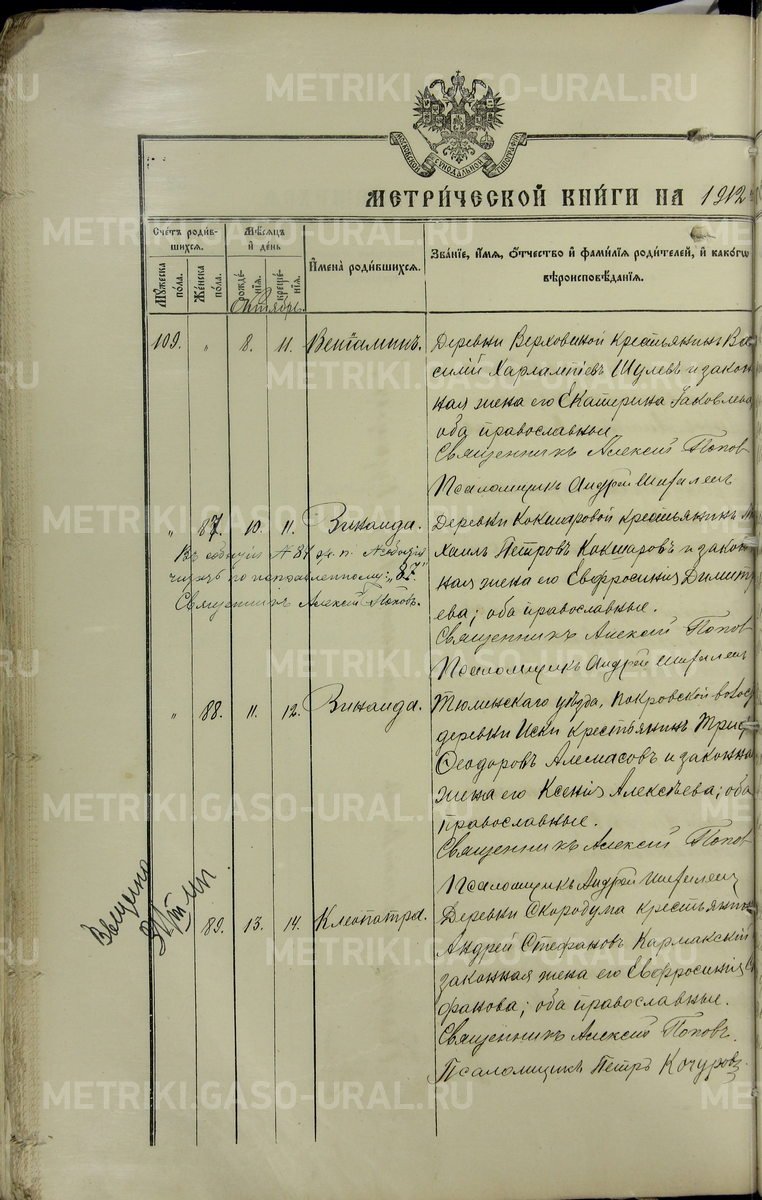 METRIKI.GASO-URAL.RU
МОСКОВСКОЙ СѴНОДАЛЬНОЙ ТИПОГРАФІИ
МЕТРИ́ЧЕСКОЙ КНИ́ГИ НА 1912
Сче́тъ роди́в-
шихся.
Му́жеска по́ла.
Же́нска по́ла.
Мѣ́сяцъ и҆ де́нь
рожде́нїя.
креще́нїя.
И҆мена̀ роди́вшихся.
Зва́нїе, и҆́мя, ѻ҆́тчество и҆ фами́лїя роди́телей, и҆ како́гѡ
вѣроисповѣ́данїя.
Октябрь.
109. " 8. 11. Веніаминъ.
Деревни Верховиной крестьянинъ Ва
силій Харлампіевъ Шулевъ и закон
ная жена его Екатерина Іаковлева
оба православные.
Священникъ Алексій Попов
Псаломщикъ Андрей
" 87. 10. 11. Зинаида.
Деревни Кокшаровой крестьянинъ Ми
хаилъ Петровъ Кокшаровъ и закон
ная жена его Евфросинія Димитр
ева; оба православные.
Священникъ Алексій Попов
Псаломщикъ Андрей
чистъ по поправленному: „87"
Священникъ Алексій Поповъ.
" 88. 11. 12. Зинаида.
Тюменскаго уѣзда, Покровской волос
деревни Иски крестьянинъ
Ѳеодоровъ Алемасовъ и законна
жена его Ксенія Алексѣева; оба
православные.
Священникъ Алексій Попов
Псаломщикъ Андрей
89. 13. 14. Клеопатра.
Деревни Скородума крестьянин
Андрей Стефановъ Кармакскій
законная жена его Евфросинія Сте
фанова; оба православные.
Священникъ Алексій Поповъ.
Псаломщикъ Петръ Кочуровъ